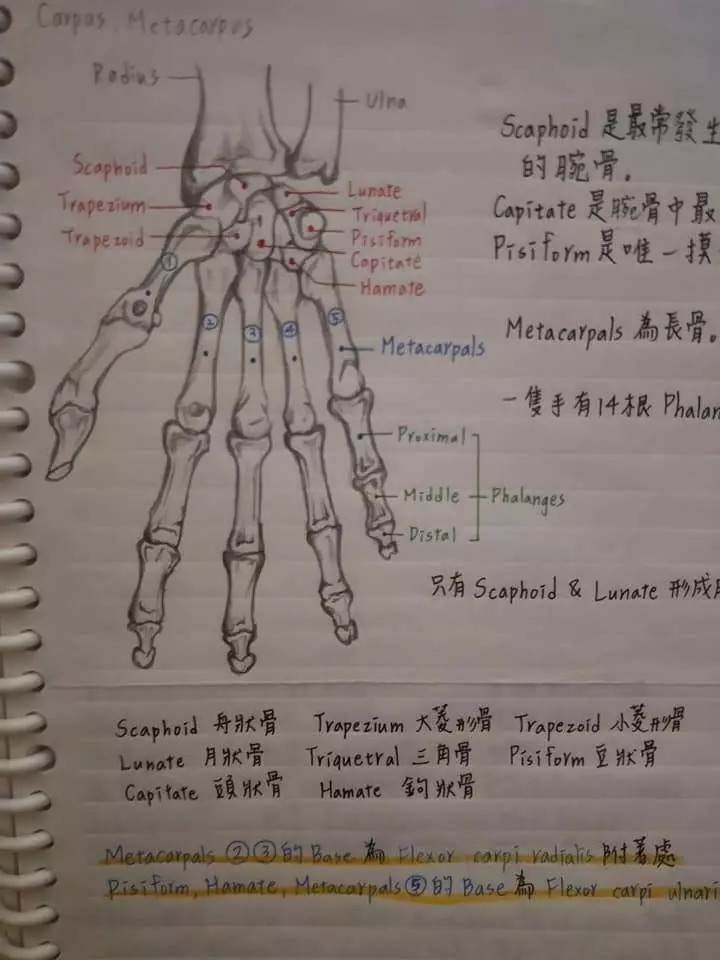 Carpus, Metacarpus
Radius
Ulna
Scaphoid
Trapezium
Trapezoid
Lunate
Triquetral
Pisiform
Capitate
Hamate
① ② ③ ④ ⑤
Metacarpals
Proximal
Middle
Distal
Phalanges
Scaphoid 是最常發生
的腕骨。
Capitate 是腕骨中最
Pisiform 是唯一摸
Metacarpals 為長骨。
一隻手有14根 Phalan
只有 Scaphoid & Lunate 形成
Scaphoid 舟狀骨 Trapezium 大菱形骨 Trapezoid 小菱形骨
Lunate 月狀骨 Triquetral 三角骨 Pisiform 豆狀骨
Capitate 頭狀骨 Hamate 鉤狀骨
Metacarpals ②③的 Base 為 Flexor carpi radialis 附著處
Pisiform, Hamate, Metacarpals⑤的 Base 為 Flexor carpi ulnari